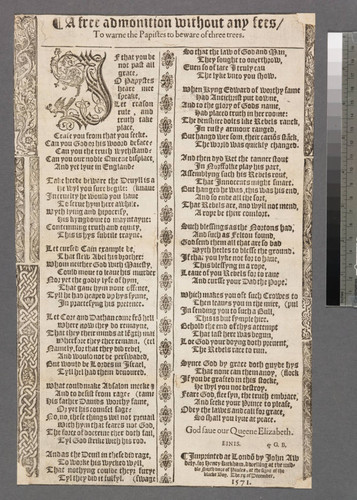 A free admonition without any fees/
To warne the Papistes to beware of three trees.
IF that you be
not past all
grace,
O Papystes
heare mee
speake,
Let reason
rule, and
truth take
place,
Cease you from that you seeke.
Can you Gods his woord deface?
Can you the truth wythstande?
Can you our noble Queene displace,
And yet lyue in Englande
Take heede beware the Deuyll is a
he wyl you sure begile: (knaue
Incerulty he would you haue
To worke
Wyth lying and hipocrisy,
his kyngdome to
Continuing truth and equity,
This is thys subtile traytor.
Let cursed Cain example be,
That slew Abel his brother:
Whom neither God with Maiesty,
Could moue to leaue his murder
Nor yet the godly lyfe of hym,
That gaue hym none offence,
Tyll he had heaped vp hys synne,
In practising his pretence.
Let Core and Dathan come fro hell
where now they do remayne,
That they their minds at large may
Wherfore they there remain. (tel
Namely, for that they did rebel,
And would not be perswaded,
But would be Lordes in Israel,
Tyll hel had them deuoured.
What could make Absalon meeke
And to desist from rage: (and
his father Dauids worthy fame,
Or yet his counsel sage:
No, no, these things will not preuail
with hym that feares not God,
The force of doctrine ther doth fail,
Tyl God strike with his rod.
And as the Deuil in these did rage,
To worke his wycked wyll,
That nothyng could theyr furye
Tyl they did it fulfyl. (swage
So that the law of God and Man,
They sought to ouerthrow,
Euen so of late I truly can
The lyke vnto you show.
When Kyng Edward of worthy fame
Had Antichrist put downe,
And to the glory of Gods name,
Had placed truth in her roome:
The deuilishe dolts like Rebels ranck,
In rusty armour ranged,
But hangd wer som, their cariõs stāck,
The World was quickly changed.
And then dyd Ket the tanner stout
In Norffolke play his part,
Assemblyng such his Rebels rout,
That Innocents might smart.
But hanged he was, this was his end,
And so ende all the sort,
That Rebels are, and wyll not mend,
A rope be their comfort.
Such blessings as the Nortons had,
And such as Felton found,
God send them all that are so bad
Wyth heeles to blesse the ground.
If that you lyke not for to haue,
This blessyng in a rope,
Leaue of you Rebels for to raue
And cursse your Dad the Pope.
Which makes you of such Crowes to
Then leaues you in the mire, (put
In sending you to such a Gull,
Thys is but symple hire.
Behold the end of thys attempt
That last here was begun,
Let God your doyng doth preuent,
The Rebels race to run.
Synce God by grace doth guyde hys
That none can them anoy, (flock
If you be graften in this stocke,
he wyl you not destroy.
Feare God, flee syn, the truth embrace,
And seeke your Prince to please,
Obey the lawes and call for grace,
So shall you lyue at ease.
God saue our Queene Elizabeth.
FINIS. G. B.
Imprinted at Londõ by John Aw
dely, for Henry Kirkham, dwelling at the mid-
dle North doore of Paules, at the signe of the
blacke Boy. The 12 of December.
1571.